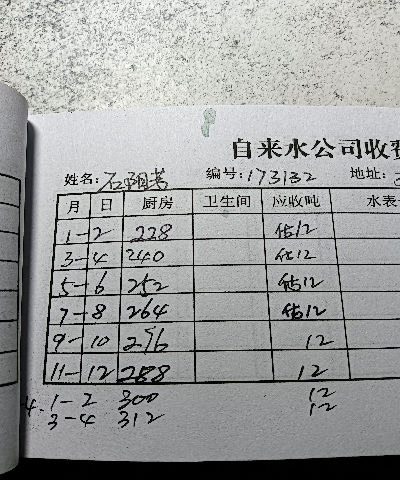 自来水公司收费
姓名: 石阳芳 编号: 173132 地址:
月 日 厨房 卫生间 应收吨 水表
1-2 228 估12
3-4 240 估12
5-6 252 估12
7-8 264 估12
9-10 276 12
11-12 288 12
4. 1-2 300 12
3-4 312 12